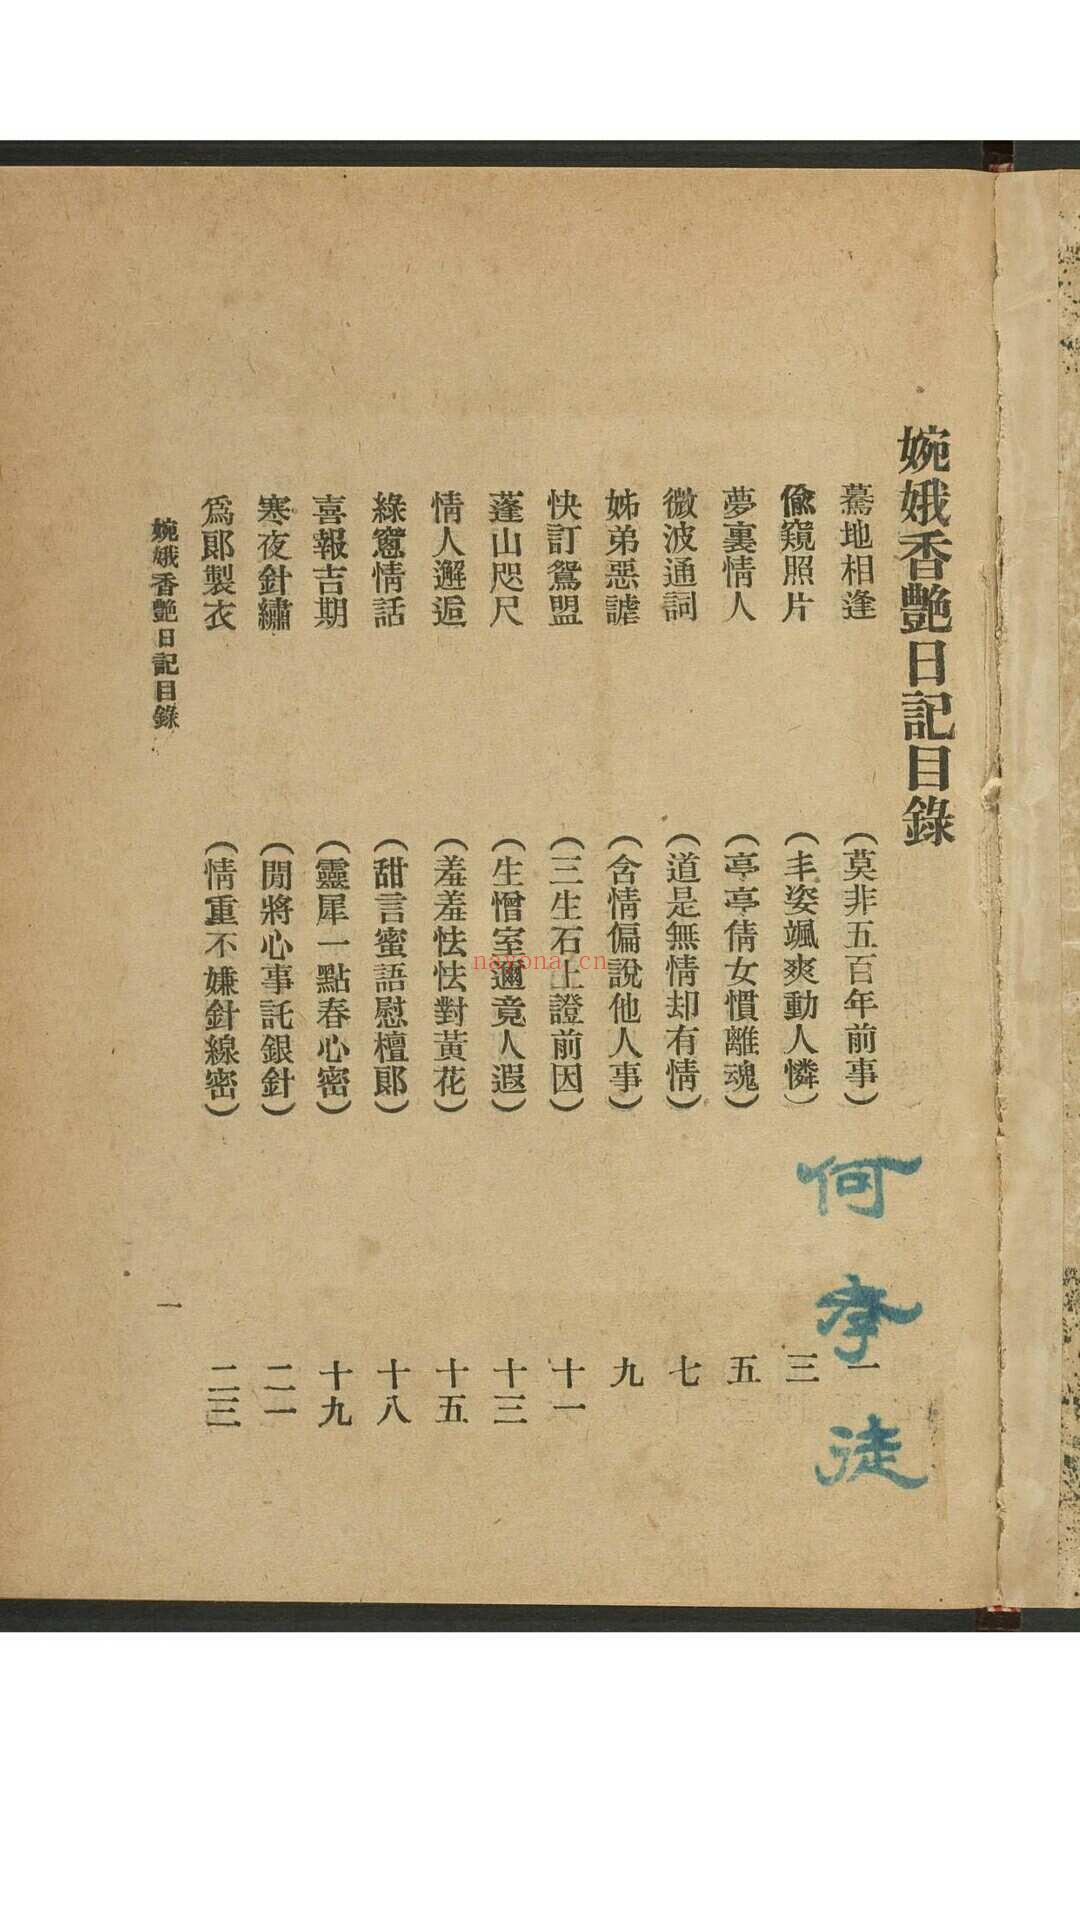 婉娥香艷日記目錄
驀地相逢（莫非五百年前事）一
偸窺照片（丰姿颯爽動人憐）三
夢裏情人（亭亭倩女慣離魂）五
微波通詞（道是無情却有情）七
姊弟惡謔（含情偏說他人事）九
快訂鴛盟（三生石上證前因）十一
蓬山咫尺（生憎室邇竟人遐）十三
情人邂逅（羞羞怯怯對黃花）十五
綠窻情話（甜言蜜語慰檀郞）十八
喜報吉期（靈犀一點春心密）十九
寒夜針繡（閒將心事託銀針）二一
爲郞製衣（情重不嫌針線密）二三
婉娥香艷日記目錄
一
何孝徒
nayona.cn